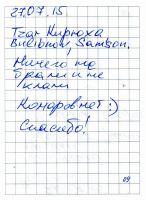 27.07.15
Тzar Кирюха
Bilibnur, Samson.
Ничего не
брали и не
клали
Комаров нет :)
Спасибо!
09